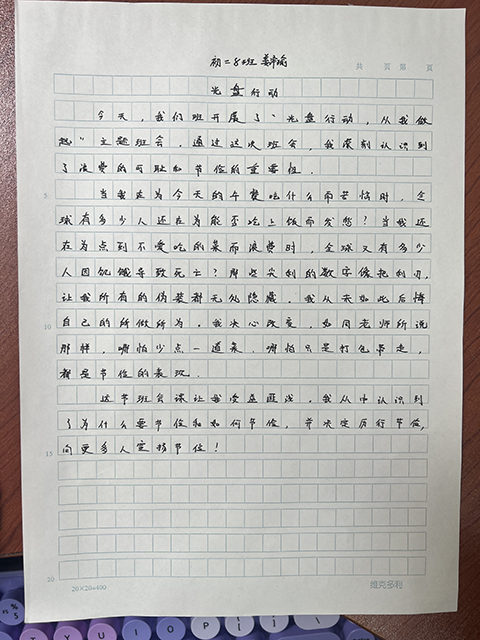 初二8班
共 页 第 页
光盘行动
今天，我们班开展了“光盘行动，从我做
起”主题班会，通过这次班会，我深刻认识到
了浪费的可耻和节俭的重要性．
5
当我在为今天的午餐吃什么而苦恼时，全
球有多少人还在为能否吃上饭而发愁？当我还
在为点到不爱吃的菜而浪费时，全球又有多少
人因饥饿导致死亡？那些尖利的数字像把利刃，
让我所有的伪装都无处隐藏，我从未如此后悔
10
自己的所做所为，我决心改变，如同老师所说
那样，哪怕少点一道菜，哪怕只是打包带走，
都是节俭的表现．
这节班会课让我受益匪浅，我从中认识到
了为什么要节俭和如何节俭，并决定厉行节俭，
15
向更多人宣扬节俭！
20
20×20=400
维克多利
% 5
T Y U I O P { [ } ]